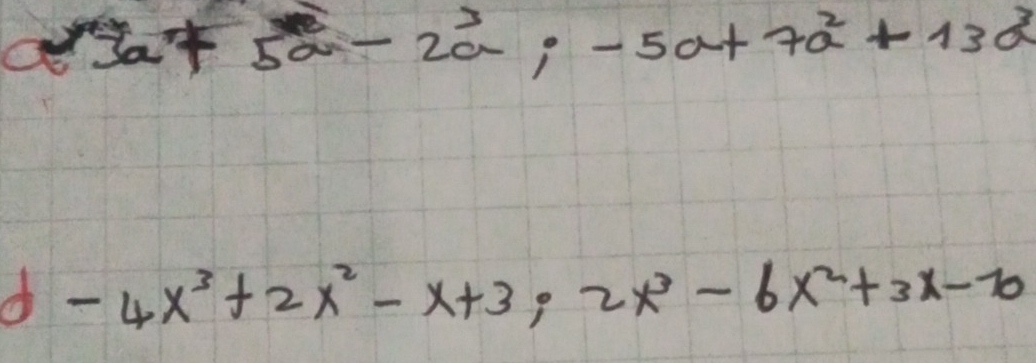 a 3a + 5a² - 2a³ ; - 5a + 7a² + 13a³
d - 4x³ + 2x² - x + 3 ; 2x³ - 6x² + 3x - 10